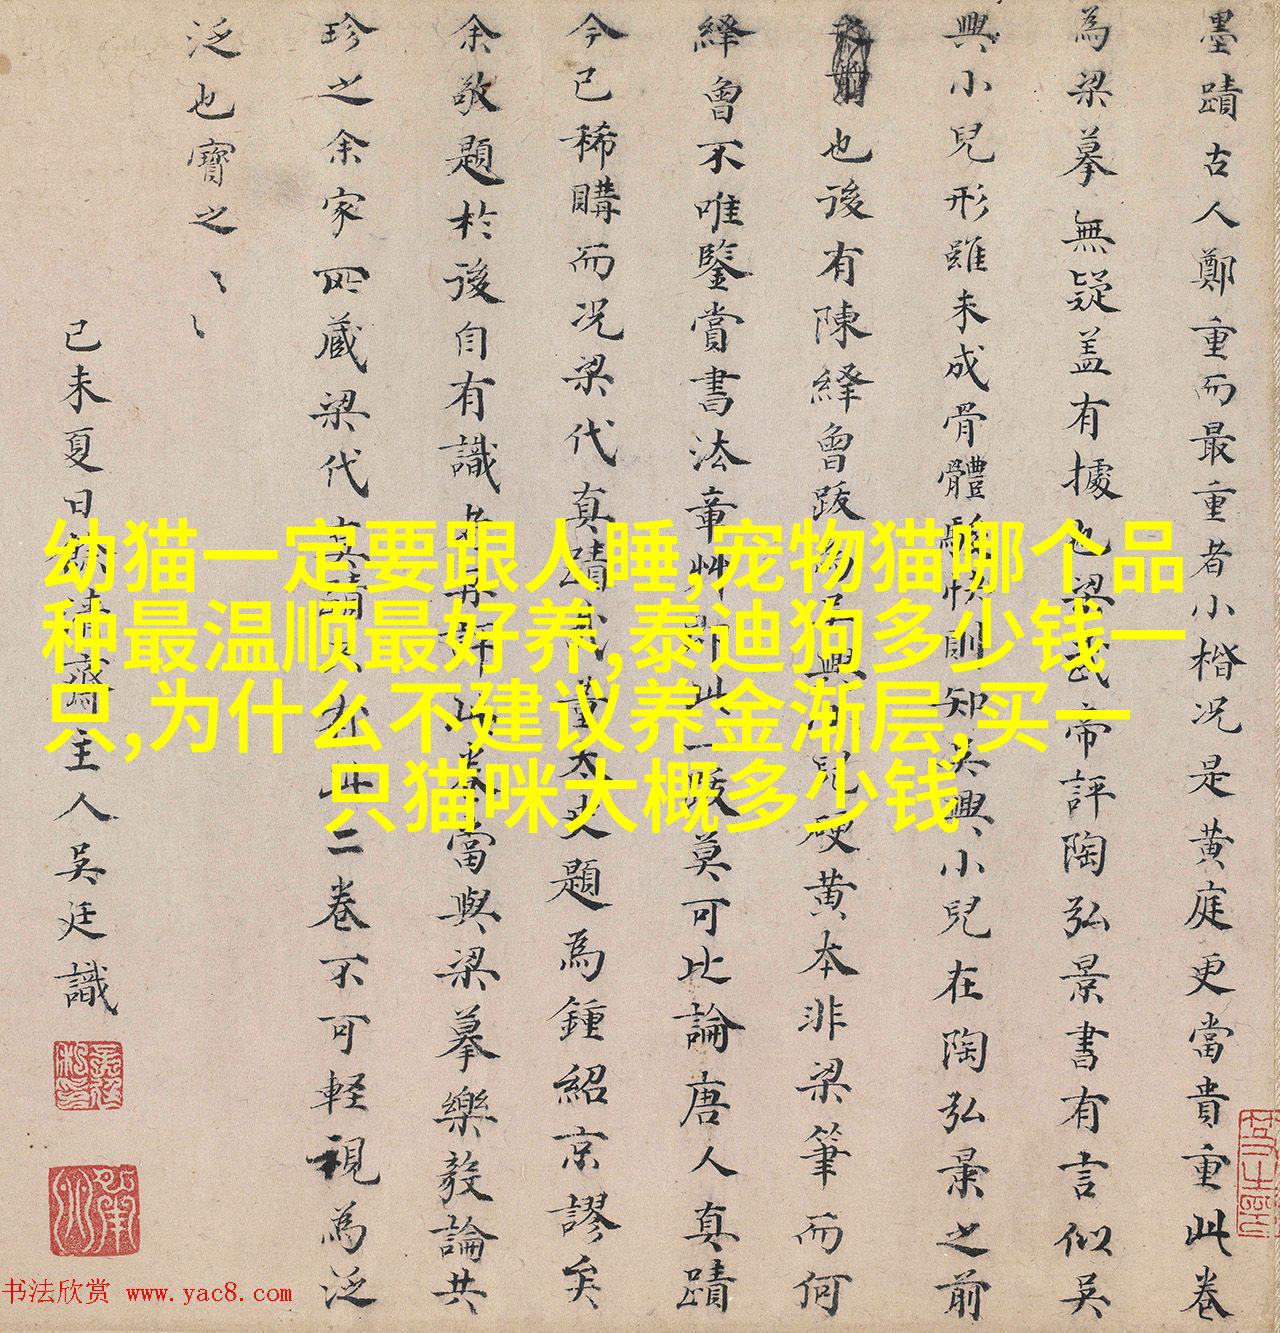 墨蹟古人鄭重而最重者小楷况是黄庭更當貴重此卷
為梁摹無疑盖有據也梁武帝評陶弘景書有言似吴
興小兒形雖未成骨體駿快則知吴興小兒在陶弘景之前
也後有陳繹曾跋為吴興小兒硬黄本非梁筆而何
繹曾不唯鑒賞書法章艸即此一跋莫可比論唐人真蹟
今已稀購而况梁代真蹟董太史題為鍾紹京謬矣
余敬題於後自有識者再評此卷當與梁摹樂毅論共
珍之余家所藏梁代真蹟只此二卷不可輕視為泛
泛也寶之〻〻
己未夏日主人吴廷識
幼猫一定要跟人睡,宠物猫哪个品
种最温顺最好养,泰迪狗多少钱一
只,为什么不建议养金渐层,买一
只猫咪大概多少钱
书法欣赏 www.yac8.com